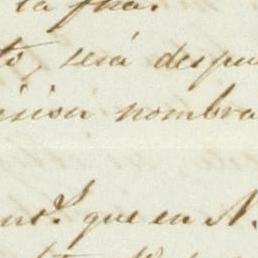 la fha.
to, será despu
ision nombra
ent.º que en N.